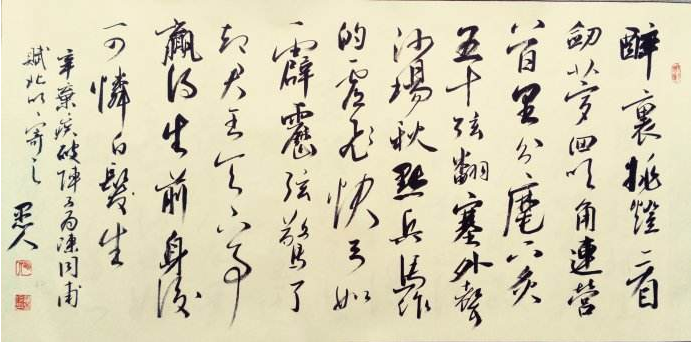 醉裏挑燈看
劍夢回吹角連營
八百里分麾下炙
五十弦翻塞外聲
沙場秋點兵馬作
的盧飛快弓如
霹靂弦驚了
卻君王天下事
贏得生前身後
可憐白髮生
辛棄疾破陣子為陳同甫
賦此以寄之